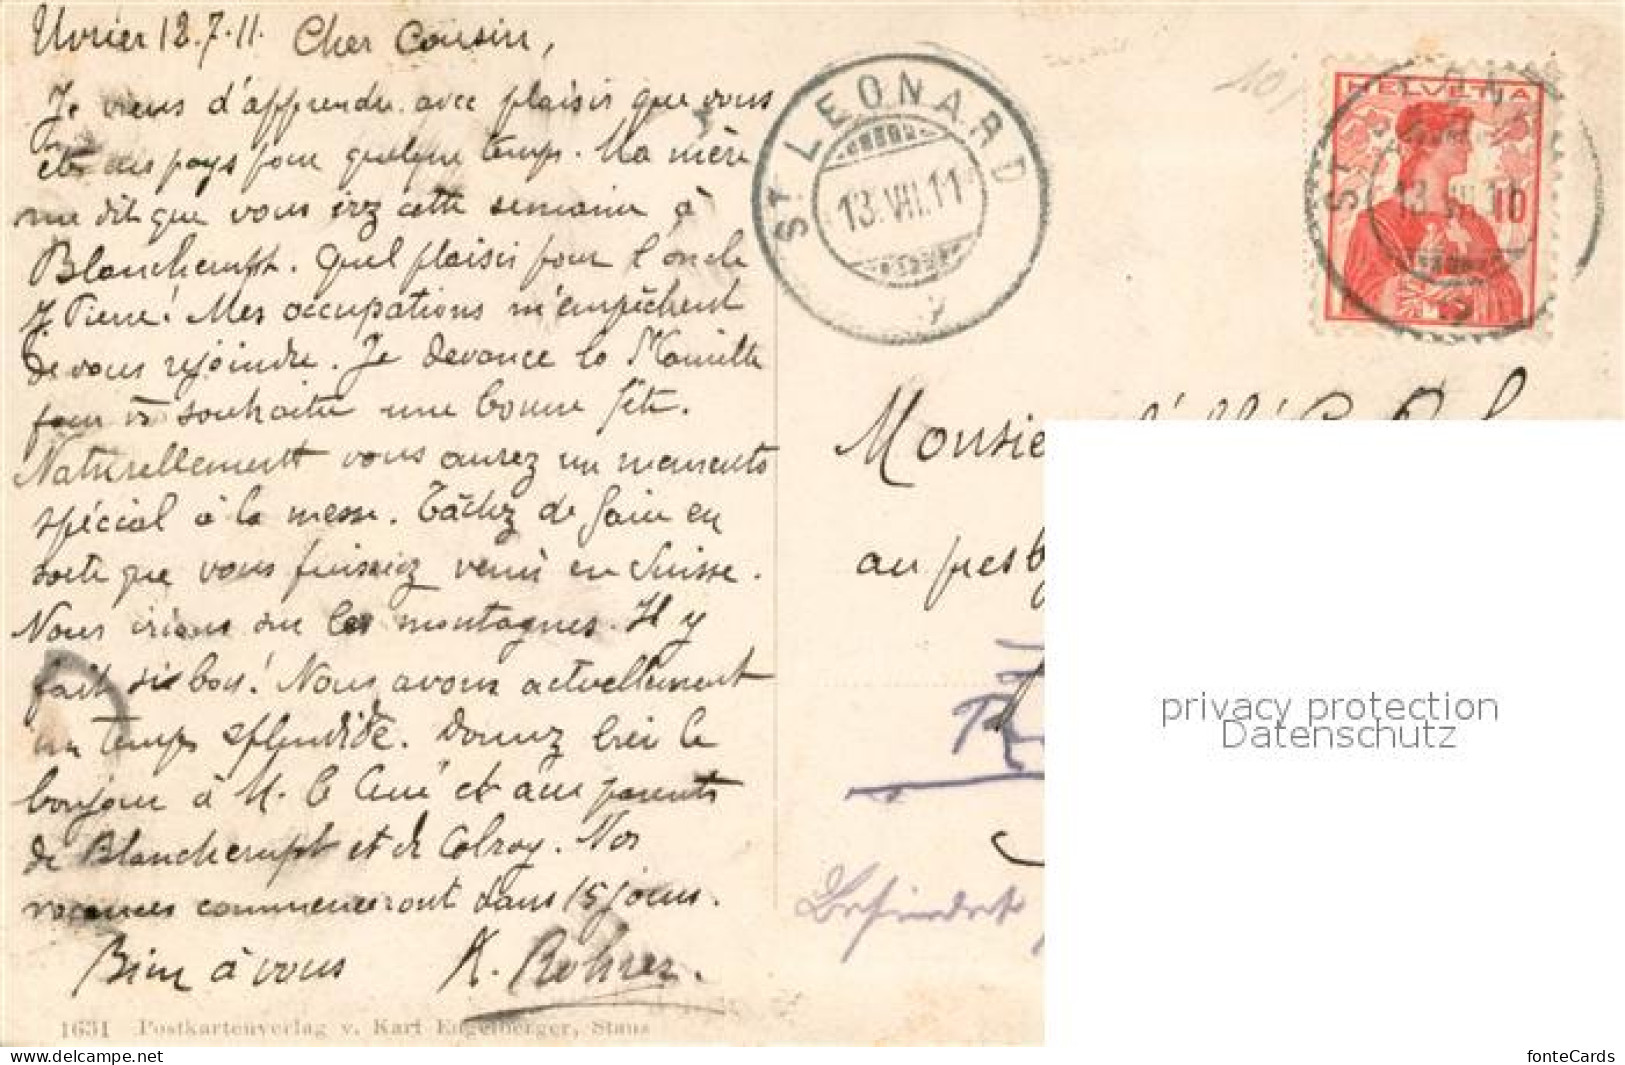 Uvrier 12.7.11. Cher Cousin,
Je viens d'apprendre avec plaisir que vous
êtes au pays pour quelque temps. Ma mère
me dit que vous irez cette semaine à
Blancherupt. Quel plaisir pour l'oncle
J. Pierre! Mes occupations m'empêchent
de vous rejoindre. Je devance la
pour vs souhaiter une bonne fête.
Naturellement vous aurez un memento
spécial à la messe. Tâchez de faire en
sorte que vous puissiez venir en Suisse.
Nous irions sur les montagnes. Il y
fait si bon! Nous avons actuellement
un temps splendide. Donnez bien le
bonjour à M. le Curé et aux parents
de Blancherupt et de Colroy. Nos
vacances commenceront dans 15 jours.
Bien à vous A. Rohrer.
1631 Postkartenverlag v. Karl Engelberger, Stans
ST LEONARD
13.VII.11
HELVETIA
10
ST
13.VII
Monsie
au presby
privacy protection
Datenschutz
www.delcampe.net
fonteCards